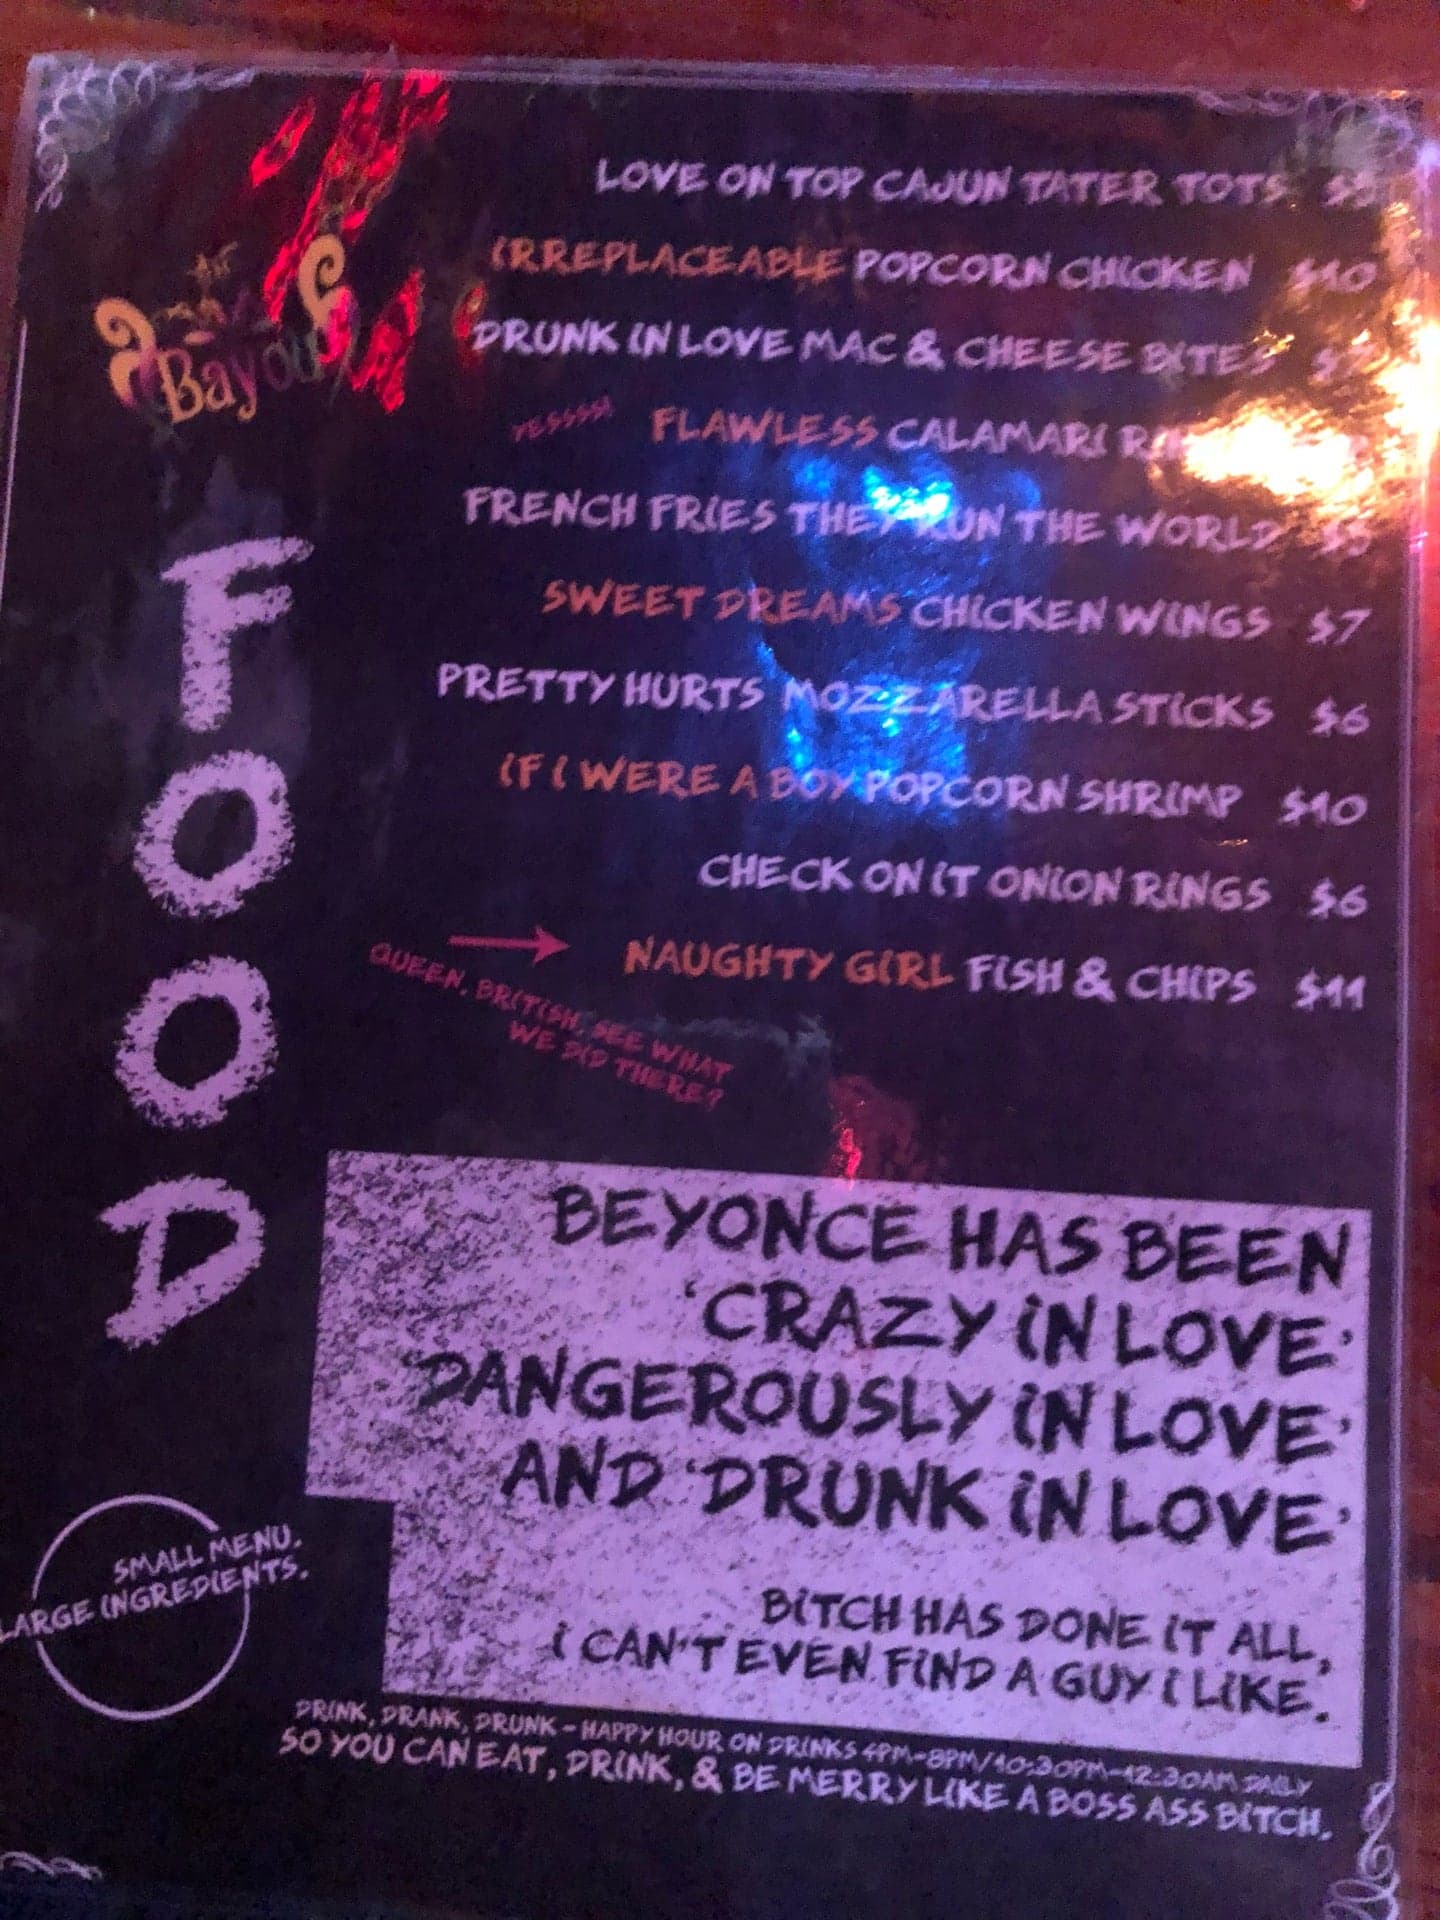 LOVE ON TOP CAJUN TATER TOTS $5
IRREPLACEABLE POPCORN CHICKEN $10
DRUNK IN LOVE MAC & CHEESE BITES
YESSSS!
FLAWLESS CALAMARI
FRENCH FRIES THEY RUN THE WORLD $5
SWEET DREAMS CHICKEN WINGS $7
PRETTY HURTS MOZZARELLA STICKS $6
IF I WERE A BOY POPCORN SHRIMP $10
CHECK ON IT ONION RINGS $6
NAUGHTY GIRL FISH & CHIPS $11
QUEEN, BRITISH, SEE WHAT
WE DID THERE?
Bayou
FOOD
BEYONCE HAS BEEN
'CRAZY IN LOVE'
'DANGEROUSLY IN LOVE'
AND 'DRUNK IN LOVE'
BITCH HAS DONE IT ALL,
I CAN'T EVEN FIND A GUY I LIKE.
SMALL MENU.
LARGE INGREDIENTS.
DRINK, DRANK, DRUNK - HAPPY HOUR ON DRINKS 4PM-8PM/10:30PM-12:30AM DAILY
SO YOU CAN EAT, DRINK, & BE MERRY LIKE A BOSS ASS BITCH.